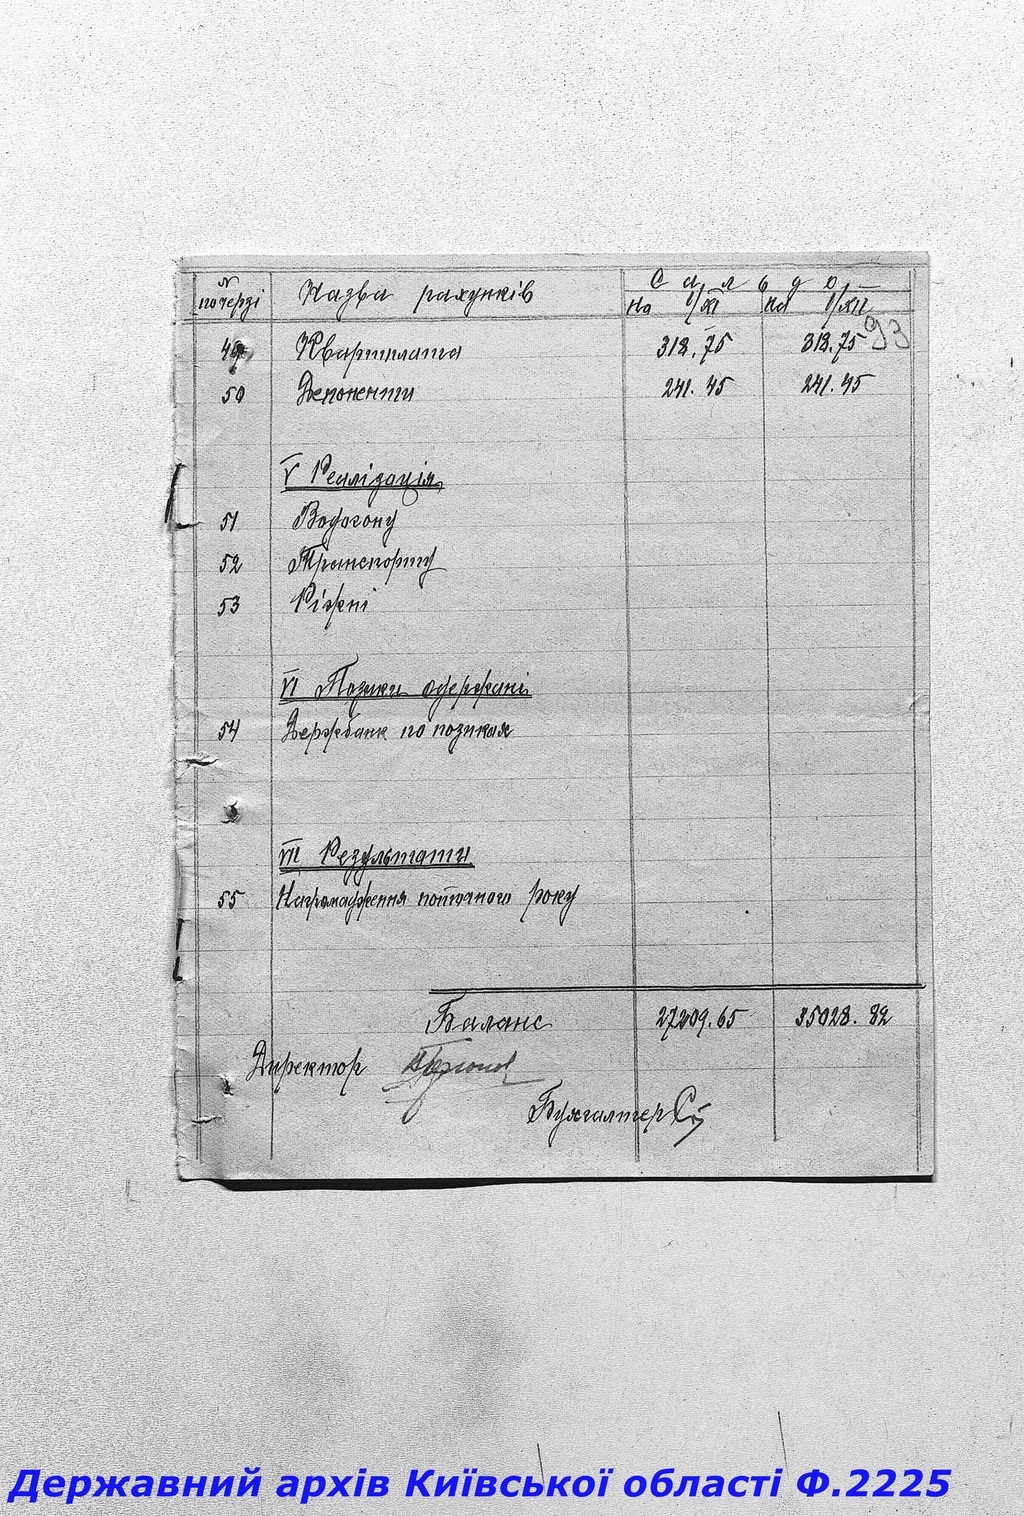 N Назва рахунків Сальдо
по черзі на 1/XI на 1/XII
93
49 Квартплата 318.75 318.75
50 Депоненти 241.45 241.45
V Реалізація
51 Водогону
52 Транспорту
53 Ріжні
VI Позики одержані
54 Держбанк по позиках
VII Результати
55 Нагромадження поточного року
Баланс 27209.65 35028.82
Директор
Бухгалтер
Державний архів Київської області Ф.2225